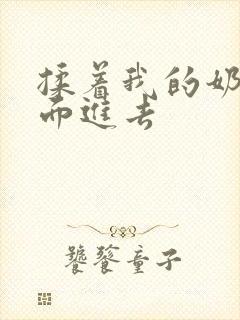 揉着我的奶
而进去
饕餮童子